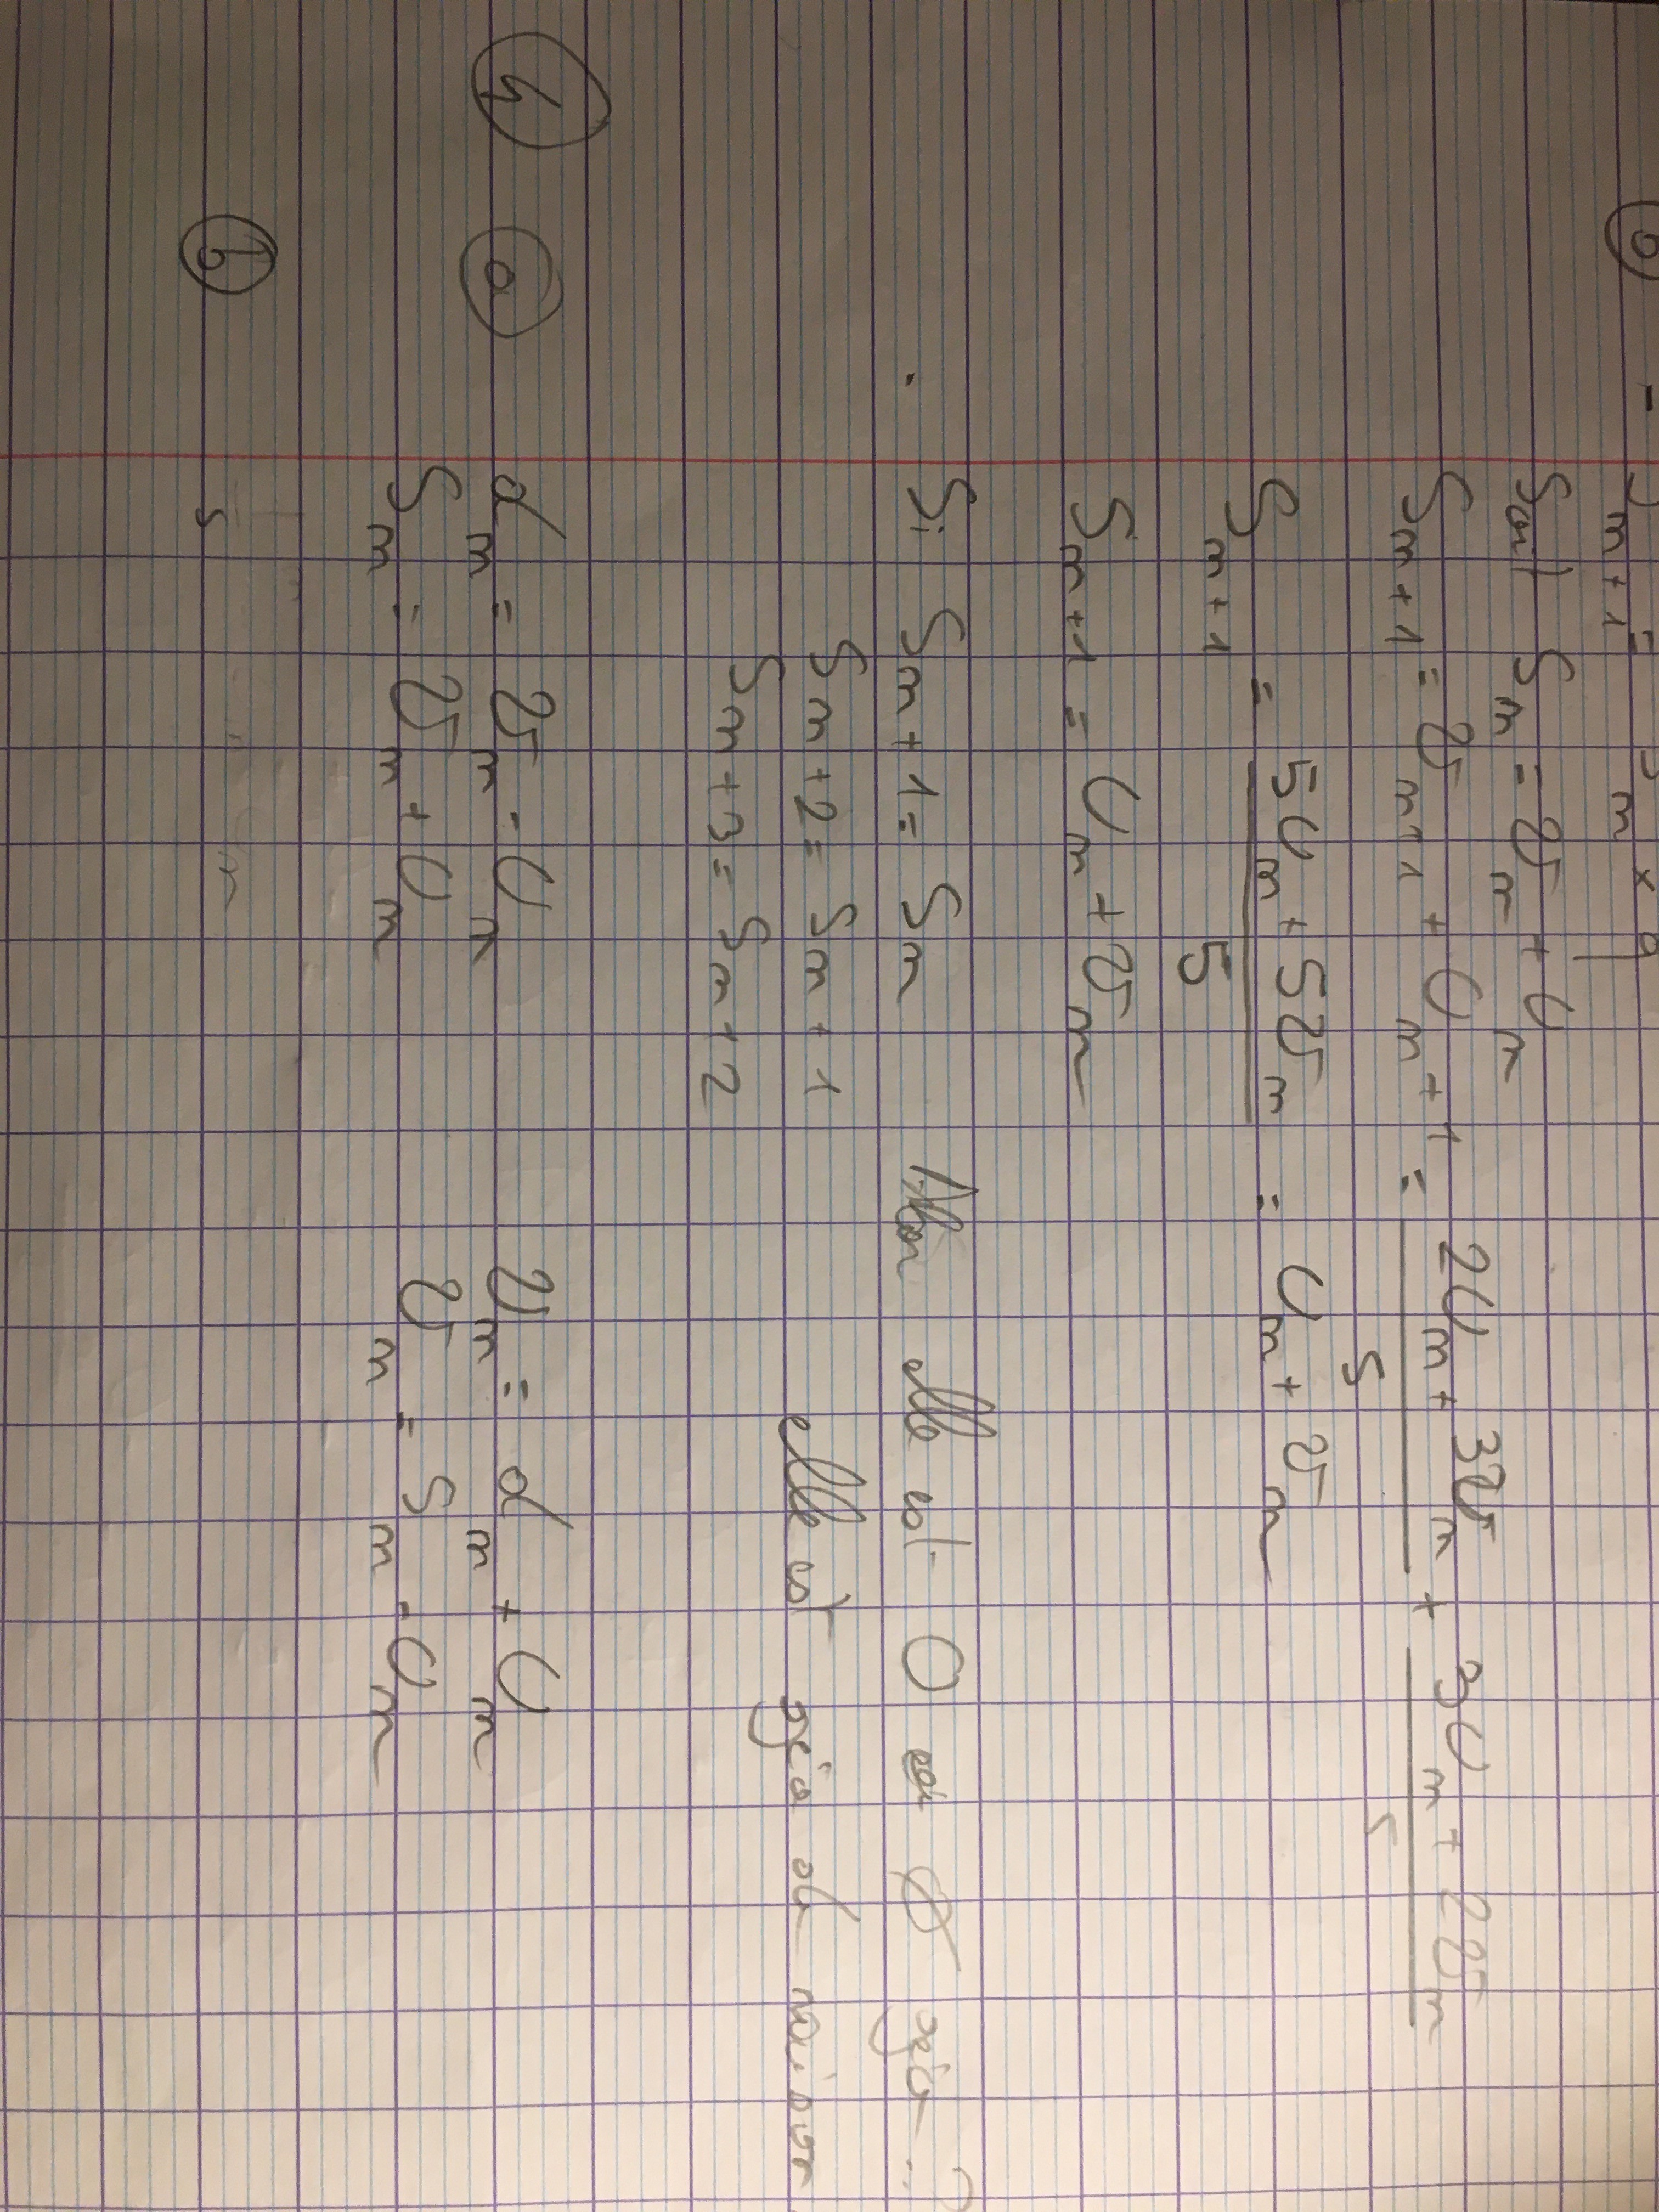 b - Sn+1 = Sn x q
Soit Sn = Vn + Un
Sn+1 = Vn+1 + Un+1 = 2Un + 3Vn / 5 + 3Un + 2Vn / 5
Sn+1 = 5Un + 5Vn / 5 = Un + Vn
Sn+1 = Un + Vn
Si Sn+1 = Sn Alors elle est 0 géo...?
Sn+2 = Sn+1 elle est géo de raison
Sn+3 = Sn+2
4 a dn = Vn - Un Vn = dn + Un
Sn = Vn + Un Vn = Sn - Un
b s